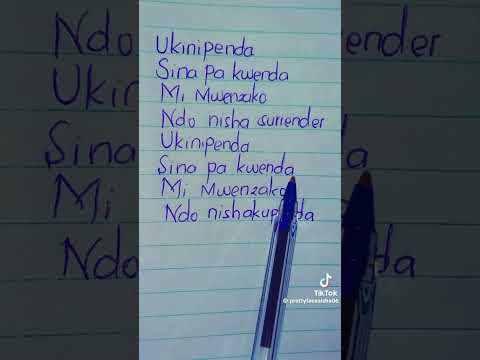 Ukinipenda
Sina pa kwenda
Mi Mwenzako
Ndo nisha surrender
Ukinipenda
Sina pa kwenda
Mi Mwenzako
Ndo
TikTok